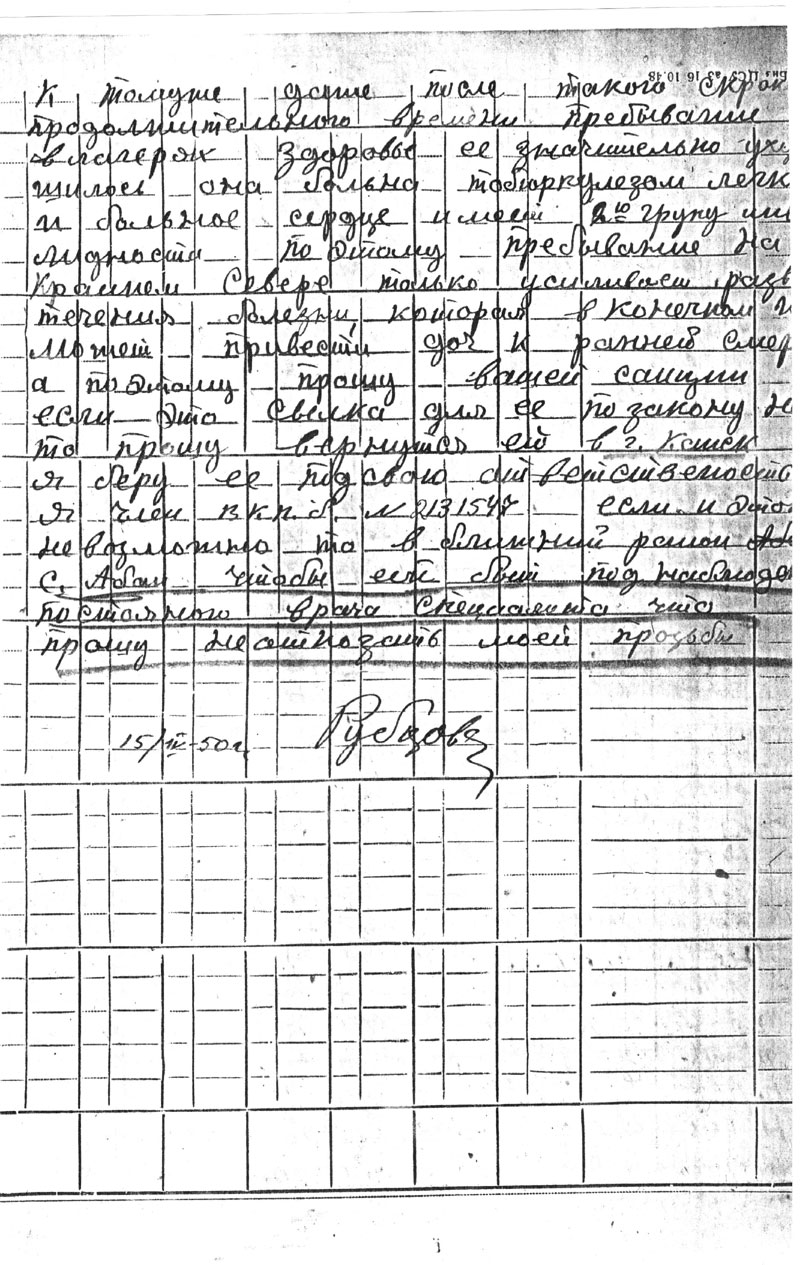 К томуже даже после такого скрок
продолжительного времени пребывание
в лагерях здоровье ее значительно уху
шилось она больна тоберкулезом легк
и больное сердце имеет 2ю групу ин
лидности по этому пребывание на
крайнем Севере только усиливает разв
течения болезни, которая в конечном и
может привести доч к ранней смер
а по этому прошу вашей санции
если эта ссылка для ее по закону н
то прошу вернуть ей в г. Канск
я беру ее под свою ответственость
я член В.К.П.б. № 2131547 если и это
невозможно то в ближний район
с. Абан чтобы ей быть под наблюде
постояного врача специалиста что
прошу не отказать моей прозьбы
15/IV-50 г. Рубцова